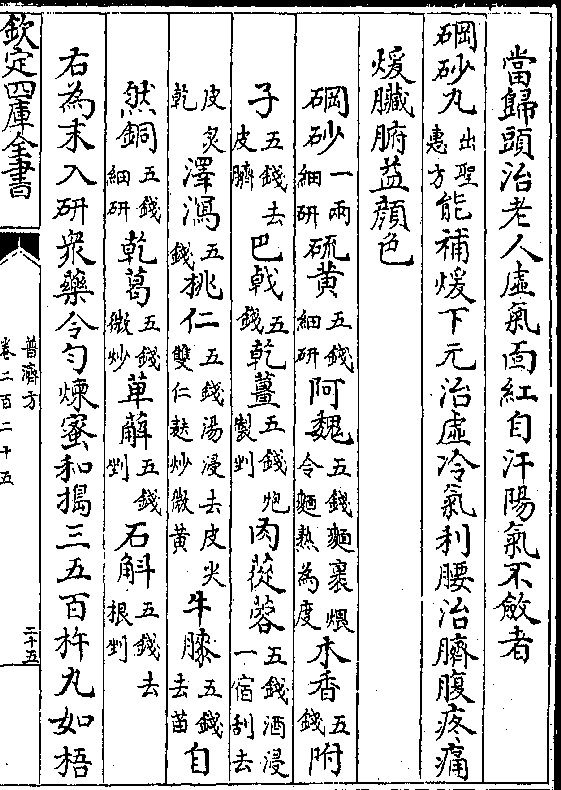 當歸頭治老人虛氣面紅自汗陽氣不斂者
碙砂丸出聖惠方能補煖下元治虛冷氣利腰治臍腹疼痛
煖臟腑益顔色
碙砂一兩細研硫黄五錢細研阿魏五錢麵裹煨令麵熟為度木香五錢附
子五錢去皮臍巴戟五錢乾薑五錢炮製剉肉蓯蓉五錢酒浸一宿刮去
皮炙乾澤瀉五錢桃仁五錢湯浸去皮尖雙仁麩炒微黄牛膝五錢去苗自
然銅五錢細研乾葛五錢微炒萆薢五錢剉石斛五錢去根剉
右為末入研衆藥令匀煉蜜和搗三五百杵丸如梧
欽定四庫全書
普濟方
卷二百二十五
二十五